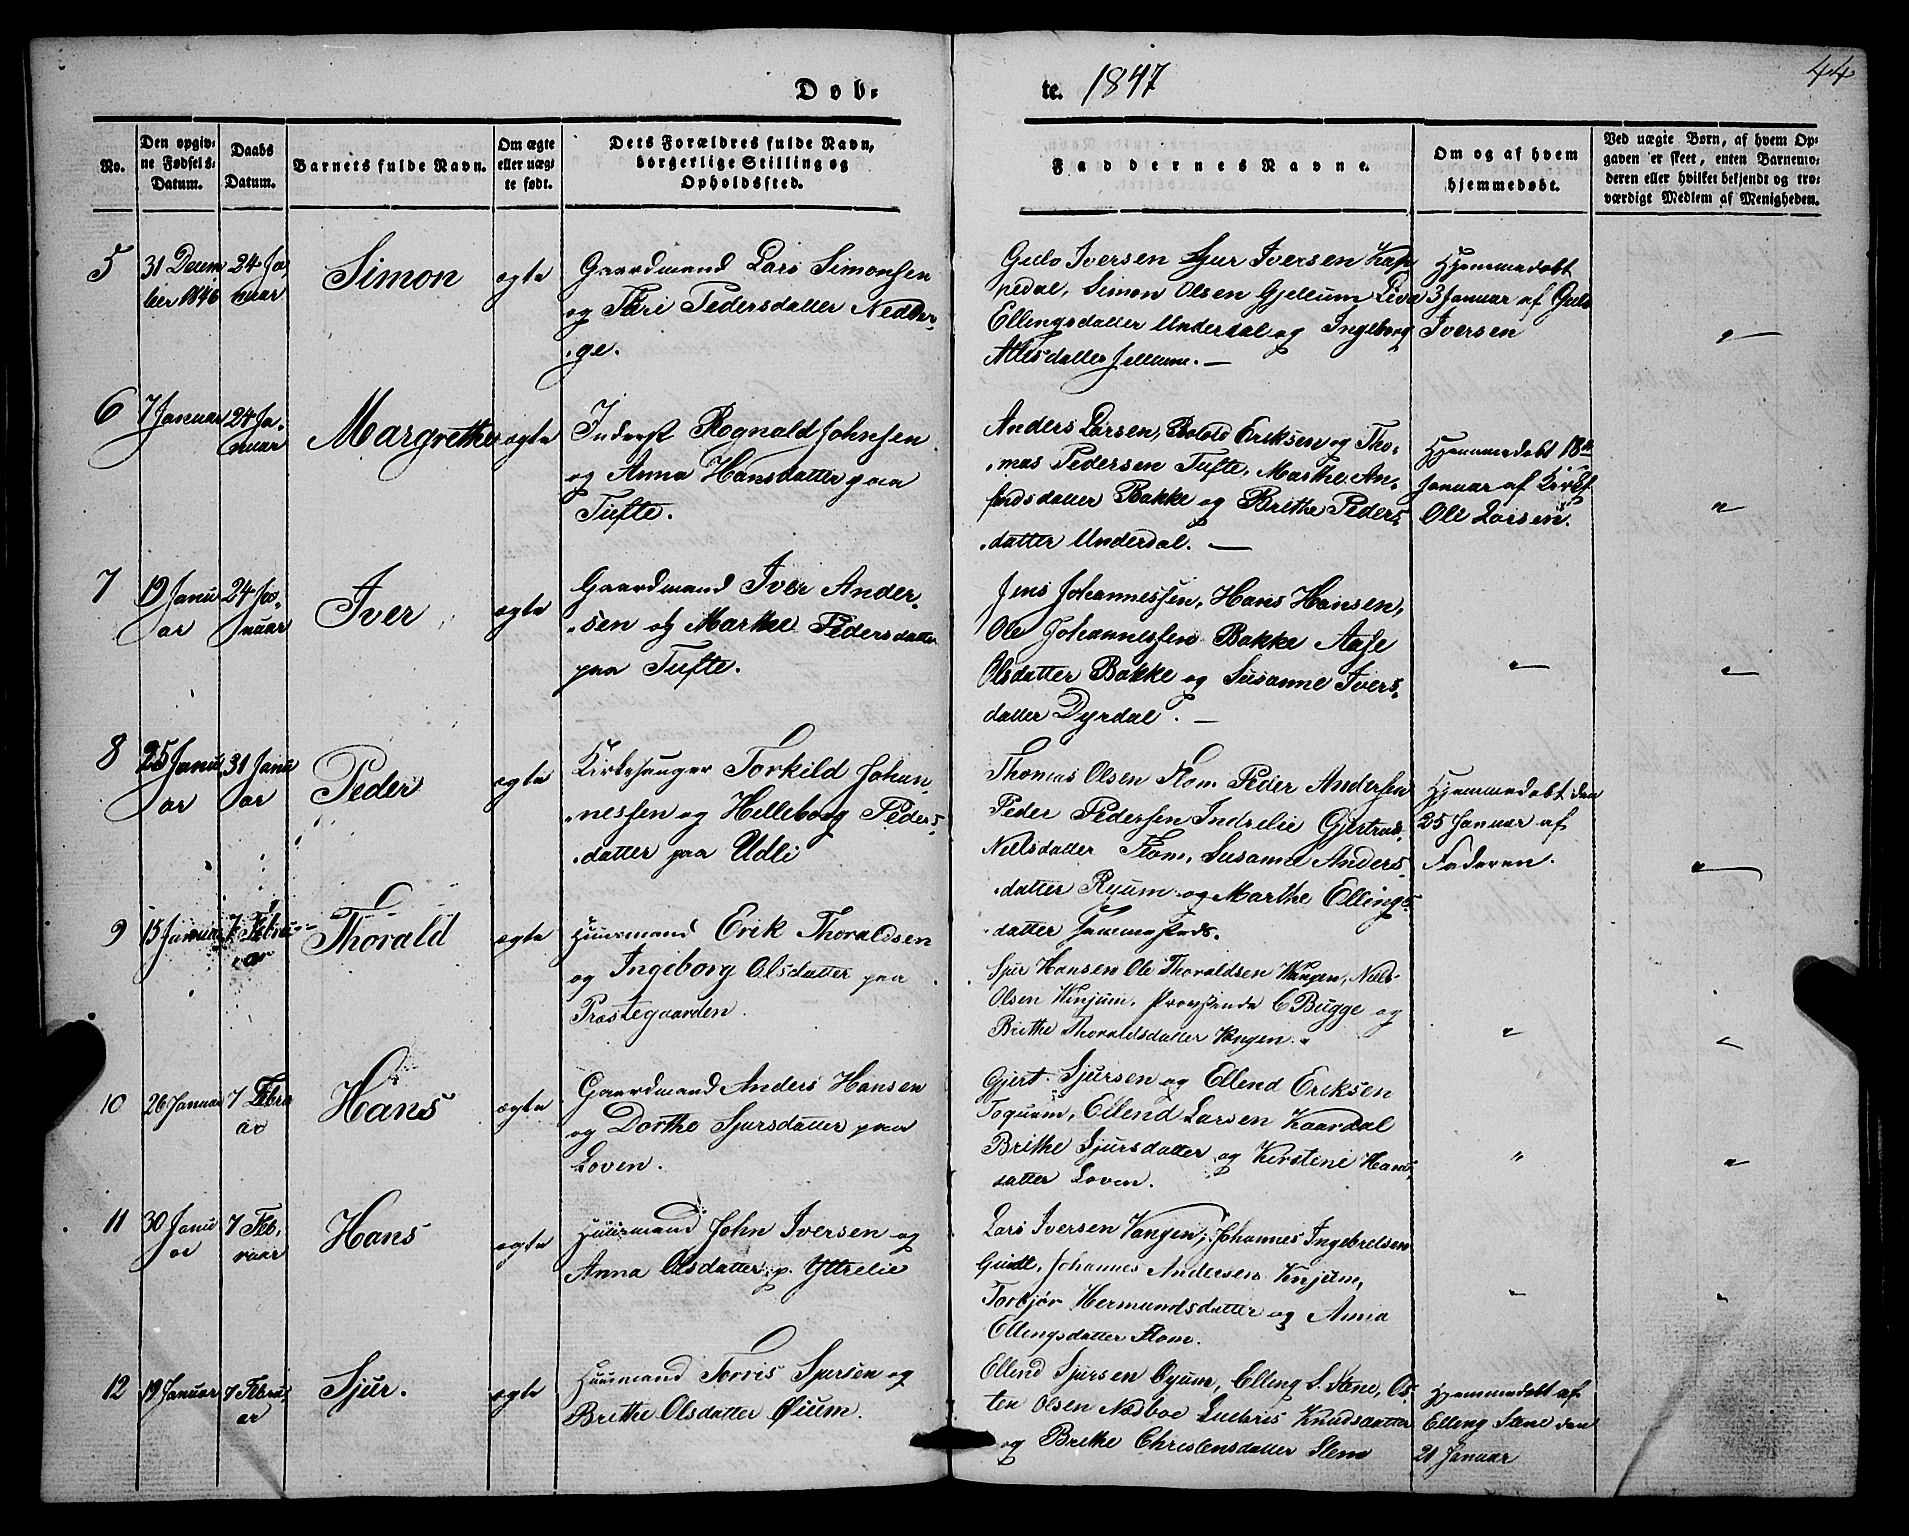 44
Døb-
te. 1847
No.
Den opgiv-
ne Fødsels-
Datum.
Daabs
Datum.
Barnets fulde Navn.
Om ægte
eller uæg-
te født.
Dets Forældres fulde Navn,
borgerlige Stilling og
Opholdssted.
Faddernes Navne.
Om og af hvem
hjemmedøbt.
Ved uægte Børn, af hvem Op-
gaven er skeet, enten Barnemo-
deren eller hvilket bekjendt og tro-
værdigt Medlem af Menigheden.
5
31 Decem
ber 1846
24 Ja-
nuar
Simon
ægte
Gaardmand Lars Simonsen
og Turi Pedersdatter Nedber-
ge.
Gulo Iversen Sjur Iversen Kap
pedal, Simon Olsen Gjellum
Ellingsdatter Underdal og Ingeborg
Hjemmedøbt
3 Januar af Gulo
Iversen
"
6
7 Januar
24 Ja-
nuar
Margrethe
ægte
Inderst Rognald Johnsen
og Anna Hansdatter paa
Tufte.
Anders Larsen, Botolv Eriksen og Tho-
mas Pedersen Tufte, Marthe An-
findsdatter Bakke og Brithe Peders-
datter Underdal. —
Hjemmedøbt 18de
Januar af
Ole Larsen.
"
7
19 Janu
ar
24 Ja-
nuar
Iver
ægte
Gaardmand Iver Ander-
sen og Marthe Pedersdatter
paa Tufte.
Jens Johannessen, Hans Hansen,
Ole Johannessen Bakke Aase
Olsdatter Bakke og Susanne Ivers-
datter Dyrdal. —
"
"
8
25 Janu
ar
31 Janu
ar
Peder
ægte
Kirkesanger Torkild Johan-
nessen og Helleborg Peders-
datter paa Udli
Thomas Olsen Flom Peder Andersen
Peder Pedersen Indrelie Gjertrud
Nielsdatter Flom, Susanna Anders-
datter Ryum og Marthe Ellings-
datter
Hjemmedøbt den
25 Januar af
Faderen.
"
9
15 Januar
7 Febru-
ar
Thorald
ægte
Huusmand Erik Thoraldsen
og Ingeborg Olsdatter paa
Præstegaarden.
Sjur Hansen Ole Thoraldsen Vangen, Niels
Olsen Winjum, C Bugge og
Brithe Thoraldsdatter Vangen.
"
"
10
26 Januar
7 Febru
ar
Hans
ægte
Gaardmand Anders Hansen
og Dorthe Sjursdatter paa
Loven.
Gjert Sjursen og Ellend Eriksen
Toqvam, Ellend Larsen Kaardal
Brithe Sjursdatter og Kerstine Hans-
datter Loven.
"
"
11
30 Janu
ar
7 Feb-
ruar
Hans
ægte
Huusmand John Iversen og
Anna Olsdatter p. Yttrelie
Lars Iversen Vangen, Johannes Ingebretsen
Johannes Andersen
Torbjør Hermundsdatter og Anna
Ellingsdatter Flom.
"
"
12
19 Januar
7 Febru-
ar
Sjur.
ægte
Huusmand Torris Sjursen og
Brithe Olsdatter Øium.
Ellend Sjursen Øyum, Elling S. Stene, Os-
ten Olsen Nedboe Knudsdatter
og Brithe Christensdatter Stene
Hjemmedøbt af
Elling Stene den
21 Januar